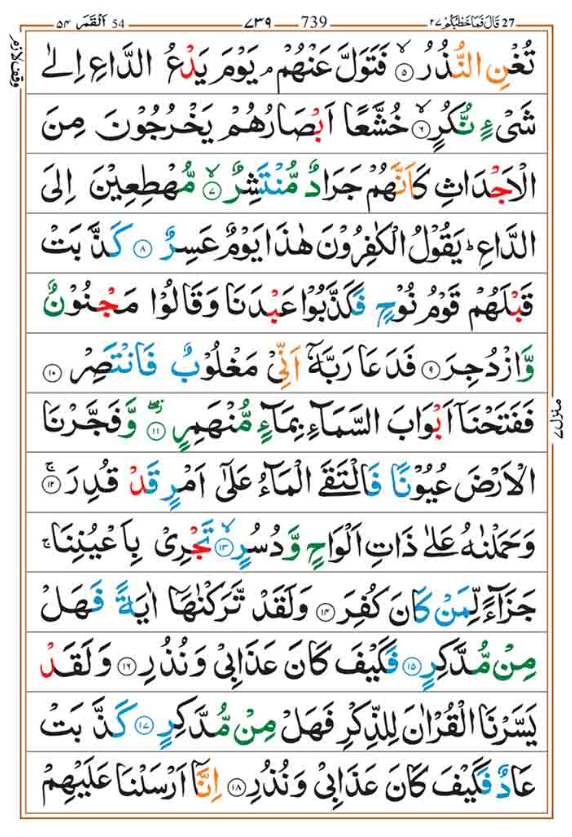 قَالَ فَمَا خَطْبُكُمْ ٢٧ 27 739 ٧٣٩ اَلْقَمَر ٥٤ 54
وقف لازم
تُغْنِ النُّذُرُ ۙ‏﴿۵﴾ فَتَوَلَّ عَنْهُمْ ۘ يَوْمَ يَدْعُ الدَّاعِ اِلٰى
شَىْءٍ نُّكُرٍ ۙ‏﴿۶﴾ خُشَّعًا اَبْصَارُهُمْ يَخْرُجُوْنَ مِنَ
الْاَجْدَاثِ كَاَنَّهُمْ جَرَادٌ مُّنْتَشِرٌ ۙ‏﴿۷﴾ مُّهْطِعِيْنَ اِلَى
الدَّاعِ ؕ يَقُوْلُ الْكٰفِرُوْنَ هٰذَا يَوْمٌ عَسِرٌ ﴿۸﴾ كَذَّبَتْ
قَبْلَهُمْ قَوْمُ نُوْحٍ فَكَذَّبُوْا عَبْدَنَا وَقَالُوْا مَجْنُوْنٌ
وَّازْدُجِرَ ﴿۹﴾ فَدَعَا رَبَّهٗۤ اَنِّىْ مَغْلُوْبٌ فَانْتَصِرْ ﴿۱۰﴾
فَفَتَحْنَاۤ اَبْوَابَ السَّمَآءِ بِمَآءٍ مُّنْهَمِرٍ ۖ ﴿۱۱﴾ وَّفَجَّرْنَا
الْاَرْضَ عُيُوْنًا فَالْتَقَى الْمَآءُ عَلٰٓى اَمْرٍ قَدْ قُدِرَ ۚ‏﴿۱۲﴾
وَحَمَلْنٰهُ عَلٰى ذَاتِ اَلْوَاحٍ وَّدُسُرٍ ۙ‏﴿۱۳﴾ تَجْرِىْ بِاَعْيُنِنَا ۚ
جَزَآءً لِّمَنْ كَانَ كُفِرَ ﴿۱۴﴾ وَلَقَدْ تَّرَكْنٰهَاۤ اٰيَةً فَهَلْ
مِنْ مُّدَّكِرٍ ﴿۱۵﴾ فَكَيْفَ كَانَ عَذَابِىْ وَنُذُرِ ﴿۱۶﴾ وَلَقَدْ
يَسَّرْنَا الْقُرْاٰنَ لِلذِّكْرِ فَهَلْ مِنْ مُّدَّكِرٍ ﴿۱۷﴾ كَذَّبَتْ
عَادٌ فَكَيْفَ كَانَ عَذَابِىْ وَنُذُرِ ﴿۱۸﴾ اِنَّاۤ اَرْسَلْنَا عَلَيْهِمْ
منزل ٧